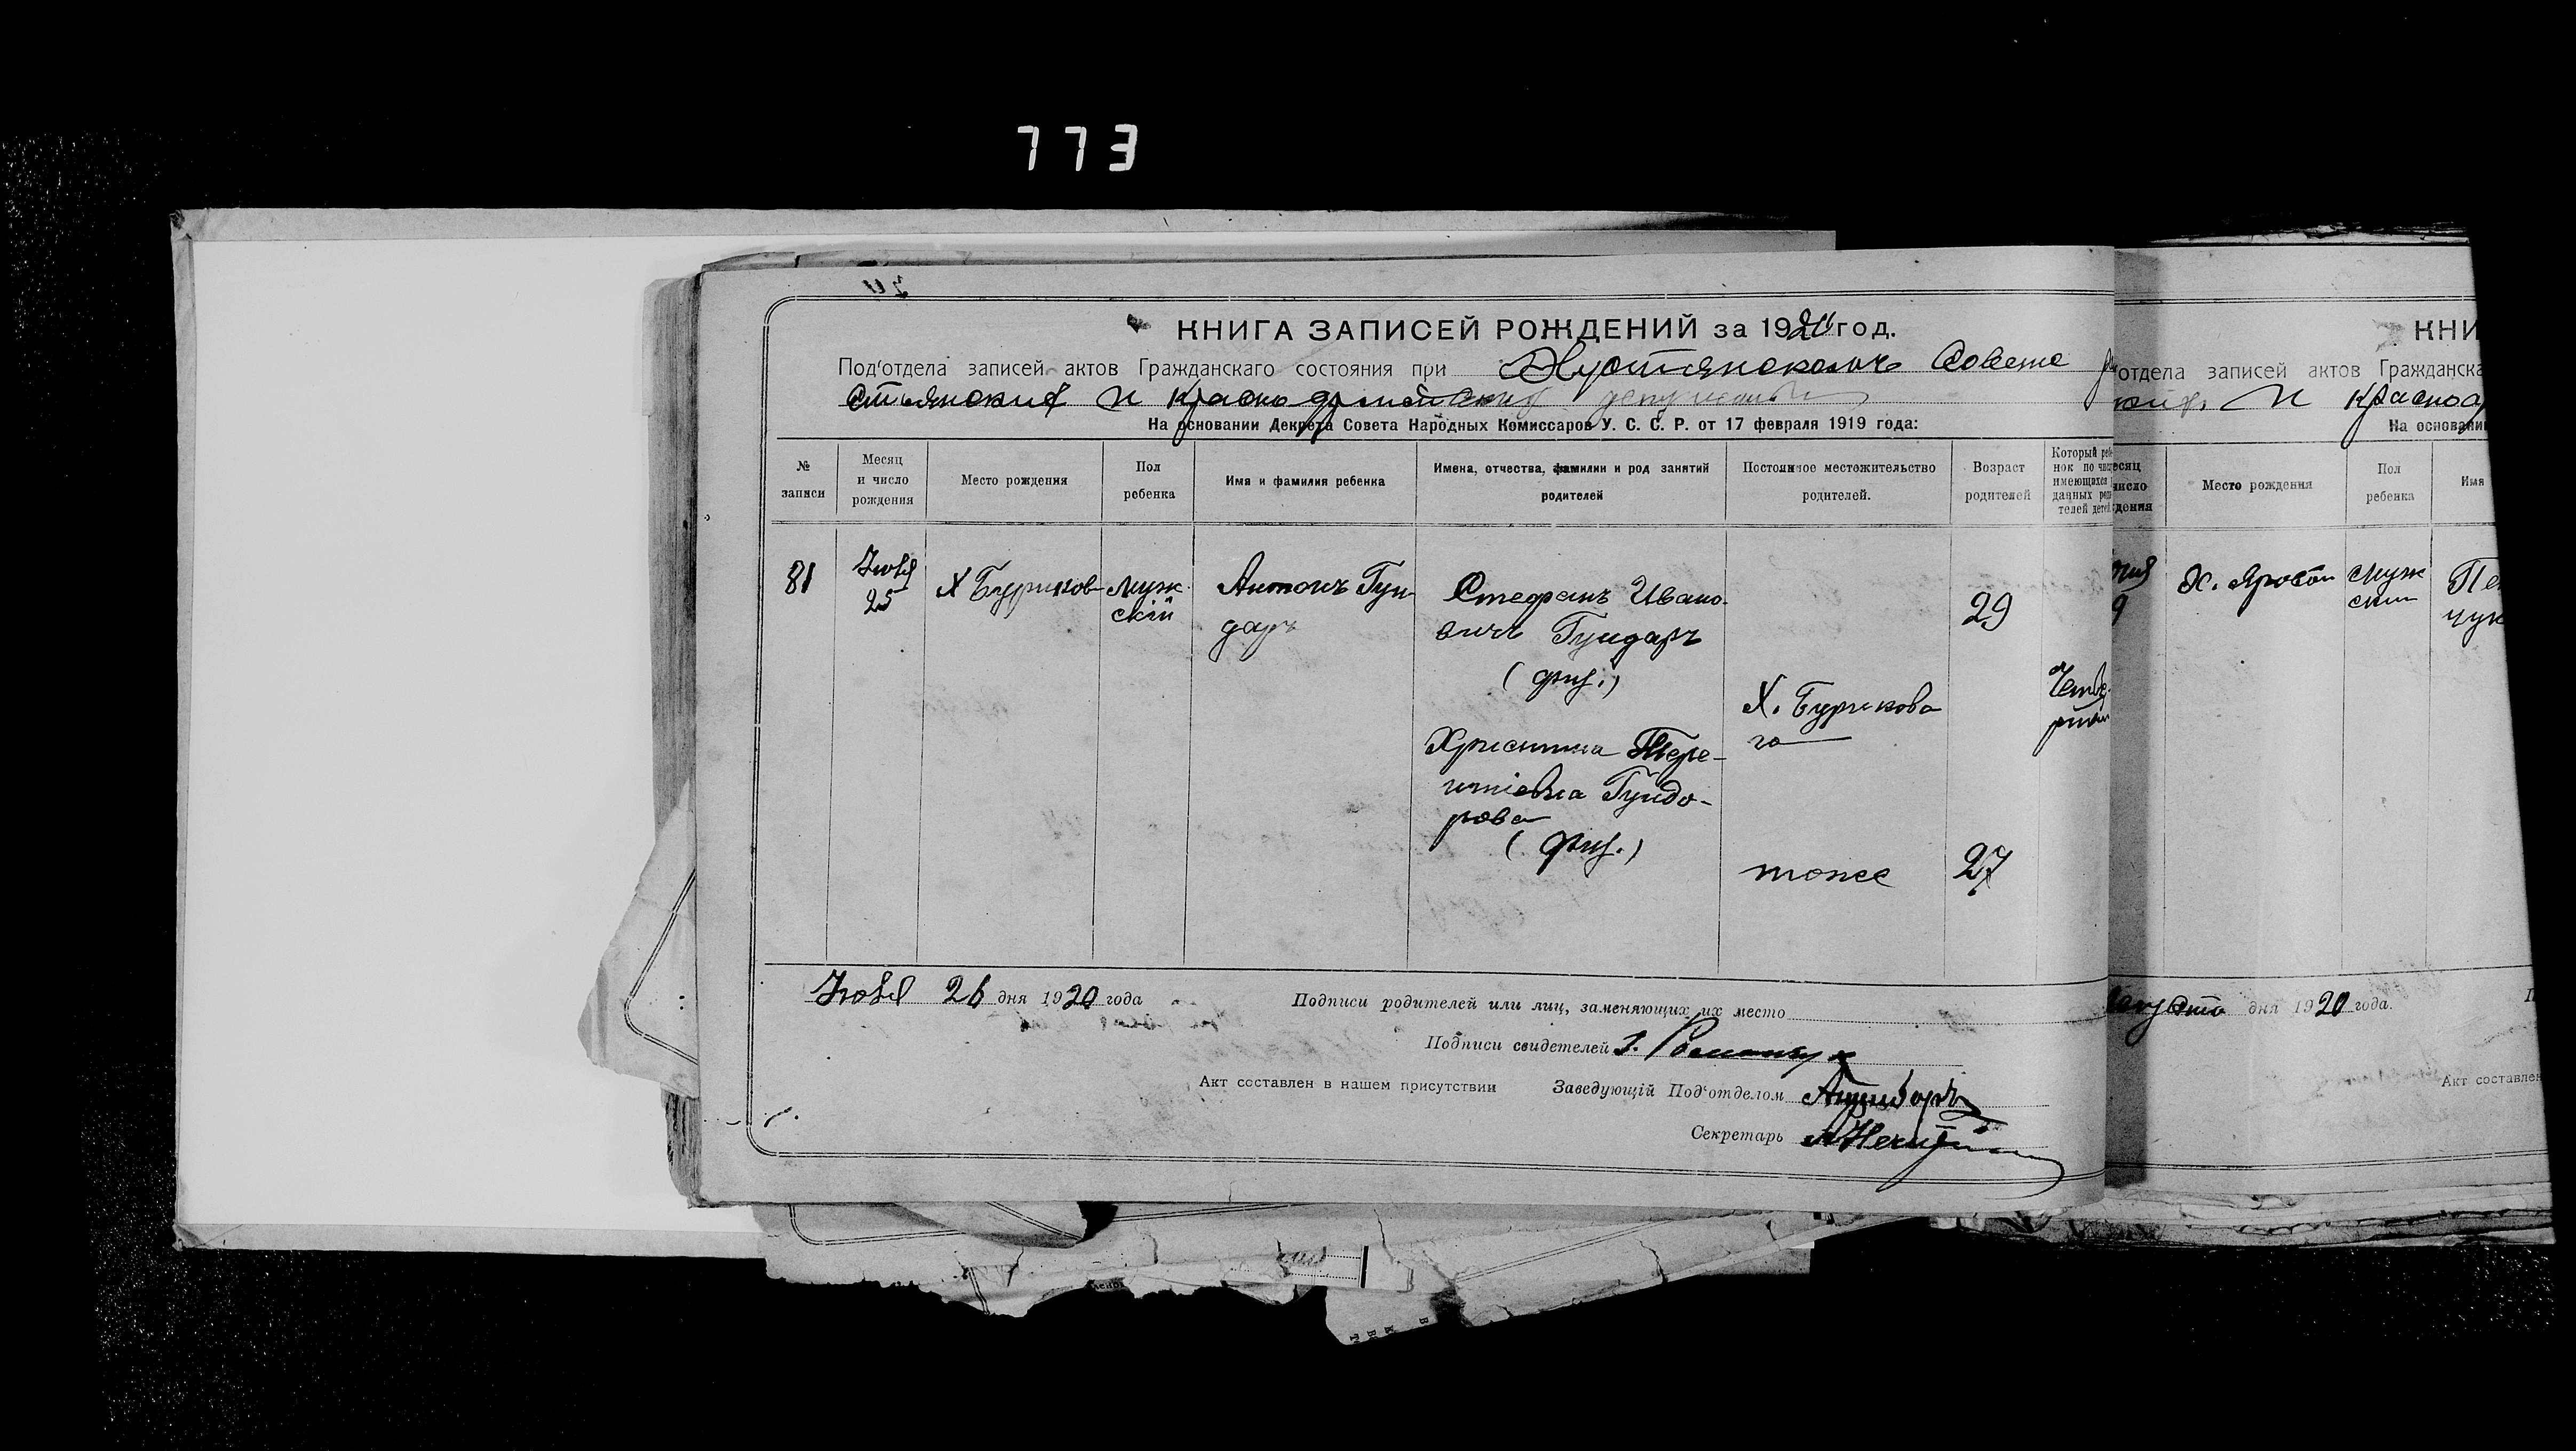 773
КНИГА ЗАПИСЕЙ РОЖДЕНИЙ за 1920 год.
Под'отдела записей актов Гражданскаго состояния при Совете
и красно
На основании Декрета Совета Народных Комиссаров У. С. С. Р. от 17 февраля 1919 года:
№ записи
Месяц и число рождения
Место рождения
Пол ребенка
Имя и фамилия ребенка
Имена, отчества, фамилии и род занятий родителей
Постоянное местожительство родителей.
Возраст родителей
81
Июля
25
Х Буриков
Муж
скій
Антонъ Гун-
даръ
Стефанъ Ивано-
вичъ Гундаръ
Христина Тере-
нтіевна Гундо-
рова
Х. Бурикова
го
тоже
29
27
Четве-
ртый
Июля 26 дня 1920 года
Подписи родителей или лиц, заменяющих их место
Подписи свидетелей 1. Романчук
Акт составлен в нашем присутствии Заведующій Под'отделом
Секретарь
КНИ
отдела записей актов Гражданска
и Красноа
На основани
Место рождения
Пол ребенка
Имя
Муж
ский
чук
дня 1920 года.
Акт составлен